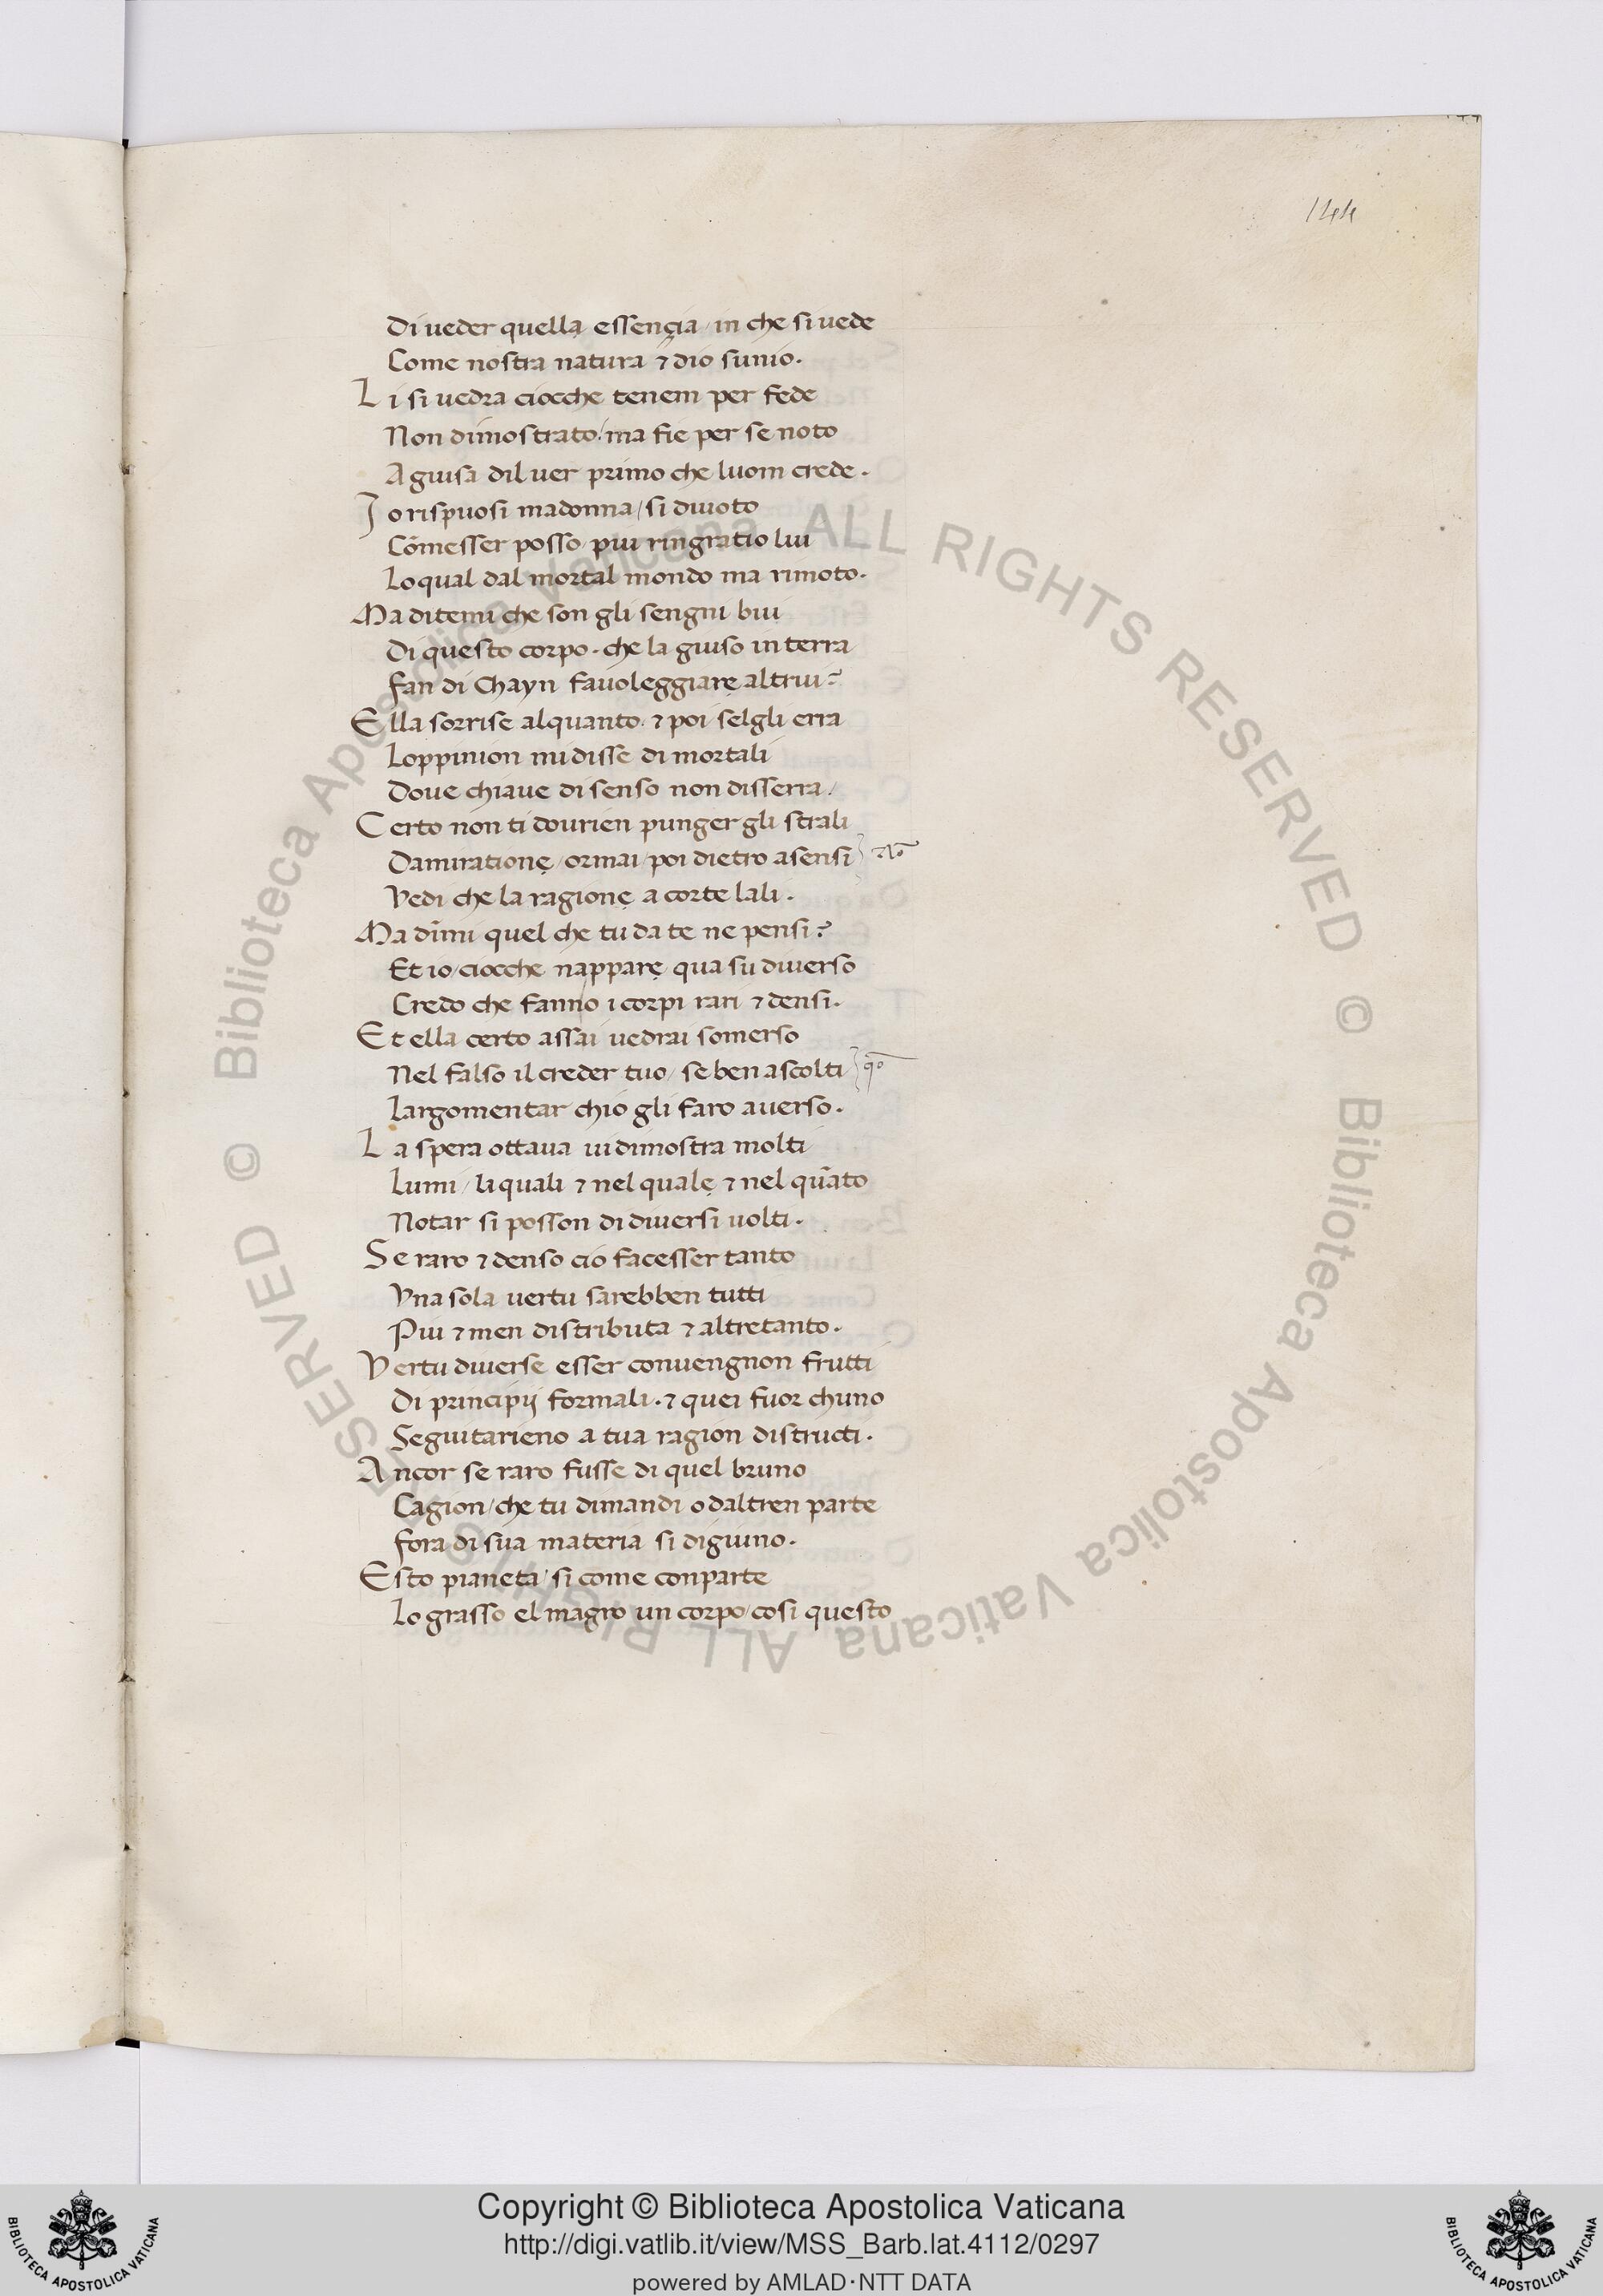 144
Di ueder quellạ essença / in che si uede
Come nostra natura ⁊ dio sunio.
Li si uedra ciocche tenem per fede
Non dimostrato / ma fie per se noto
A guisa dil uer primo che luom crede.
Jo rispuosi madonna / si diuoto
Cōmesser posso / piu ringratio lui
Loqual dal mortal mondo ma rimoto.
Ma ditemi che son gli sengni bui
Di questo corpo. che la giuso in terra
Fan di Chayn fauoleggiarẹ altrui?
Ella sorrise alquanto. ⁊ poi selgli erra
Loppinion mi disse di mortali
Doue chiaue di senso non disserra /
Certo non ti dourien punger gli strali
Damirationẹ / ormai / poi dietro a sensi
Vedi che la ragionẹ a corte lali.
Ma dimi quel che tu da te ne pensi?
Et io / ciocche napparẹ qua su diuerso
Credo che fanno i corpi rari ⁊ densi.
Et ella certo assai uedrai somerso
Nel falso il creder tuo / se ben ascolti
Largomentar chio gli faro auerso.
La spera ottaua ui dimostra molti
Lumi / li quali ⁊ nel qualẹ ⁊ nel quāto
Notar si posson di diuersi uolti.
Se raro ⁊ denso cio facesser tanto
Vna sola uertu sarebben tutti
Piu ⁊ men distributa ⁊ altretanto.
Vertu diuerse esser conuengnon frutti
Di principij formali. ⁊ quei fuor chuno
Seguitarieno a tua ragion distructi.
Ancor se raro fusse di quel bruno
Cagion / che tu dimandi o daltren parte
Fora di sua materia si digiuno.
Esto pianeta / si come conparte
Lo grasso el magro un corpo / cosi questo
© Biblioteca Apostolica Vaticana ALL RIGHTS RESERVED © Biblioteca Apostolica Vaticana ALL RIGHTS RESERVED
Copyright © Biblioteca Apostolica Vaticana
http://digi.vatlib.it/view/MSS_Barb.lat.4112/0297
powered by AMLAD·NTT DATA
BIBLIOTECA APOSTOLICA VATICANA
BIBLIOTECA APOSTOLICA VATICANA